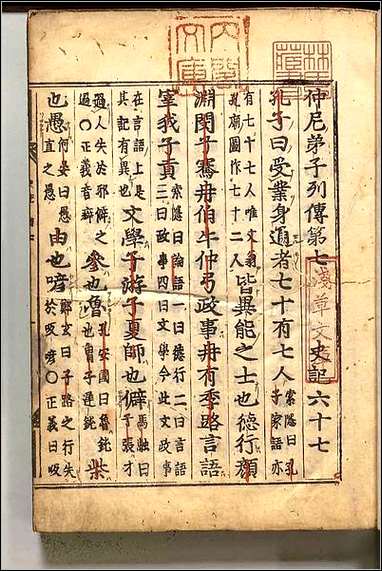 仲尼弟子列傳第七 史記六十七
孔子曰受業身通者七十有七人索隱曰孔子家語亦
有七十七人唯文翁孔廟圖作七十二人皆異能之士也德行顏
淵閔子騫冉伯牛仲弓政事冉有季路言語
宰我子貢索隱曰論語一曰德行二曰言語三曰政事四曰文學今此文政事
在言語上是其記有異也文學子游子夏師也僻馬融曰子張才
過人失於邪僻之過○正義音癖參也魯孔安國曰魯鈍也曾子遲鈍柴
也愚何晏曰愚直之愚由也喭鄭玄曰子路之行失於吸喭○正義曰吸
内閣文庫
淺草文庫